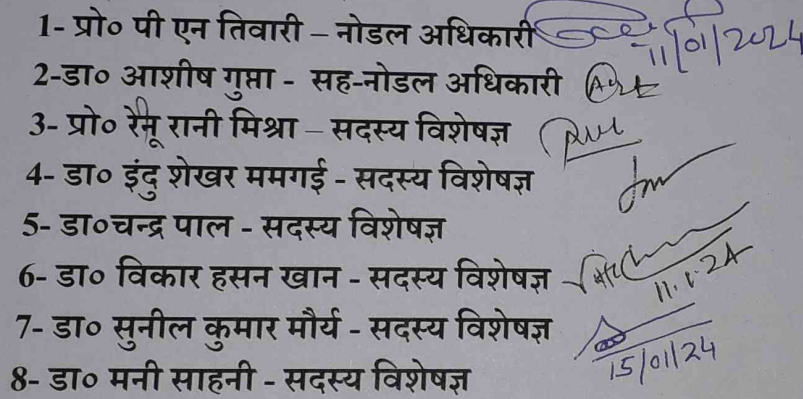 1- प्रो० पी एन तिवारी – नोडल अधिकारी
11/01/2024
2-डा० आशीष गुप्ता - सह-नोडल अधिकारी
3- प्रो० रेनू रानी मिश्रा – सदस्य विशेषज्ञ
4- डा० इंदु शेखर ममगई - सदस्य विशेषज्ञ
5- डा०चन्द्र पाल - सदस्य विशेषज्ञ
6- डा० विकार हसन खान - सदस्य विशेषज्ञ
11.1.24
7- डा० सुनील कुमार मौर्य - सदस्य विशेषज्ञ
15/01/24
8- डा० मनी साहनी - सदस्य विशेषज्ञ